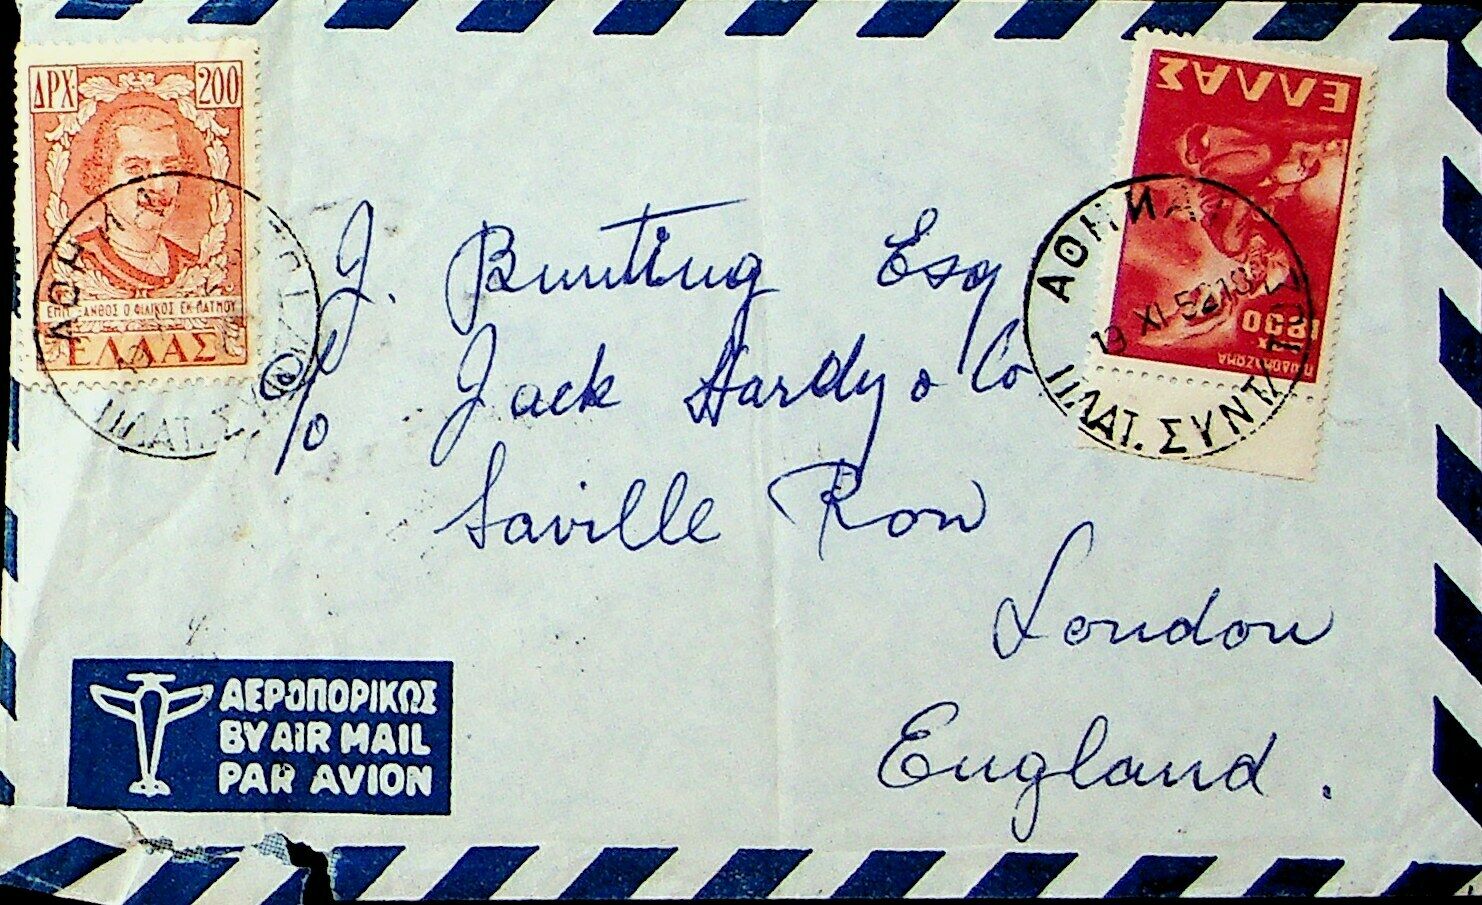 ΔΡΧ. 200
ΕΜΜ. ΞΑΝΘΟΣ Ο ΦΙΛΙΚΟΣ ΕΚ ΠΑΤΜΟΥ
ΕΛΛΑΣ
ΑΘΗΝΑΙ
ΠΛΑΤ. ΣΥΝΤΑΓ
ΕΛΛΑΣ
ΠΑΙΔΟΜΑΖΩΜΑ
ΑΘΗΝΑΙ
19 XI 52
ΠΛΑΤ. ΣΥΝΤΑΓ
J. Bunting Esq
c/o Jack Hardy & Co
Saville Row
London
England.
ΑΕΡΟΠΟΡΙΚΩΣ
BY AIR MAIL
PAR AVION